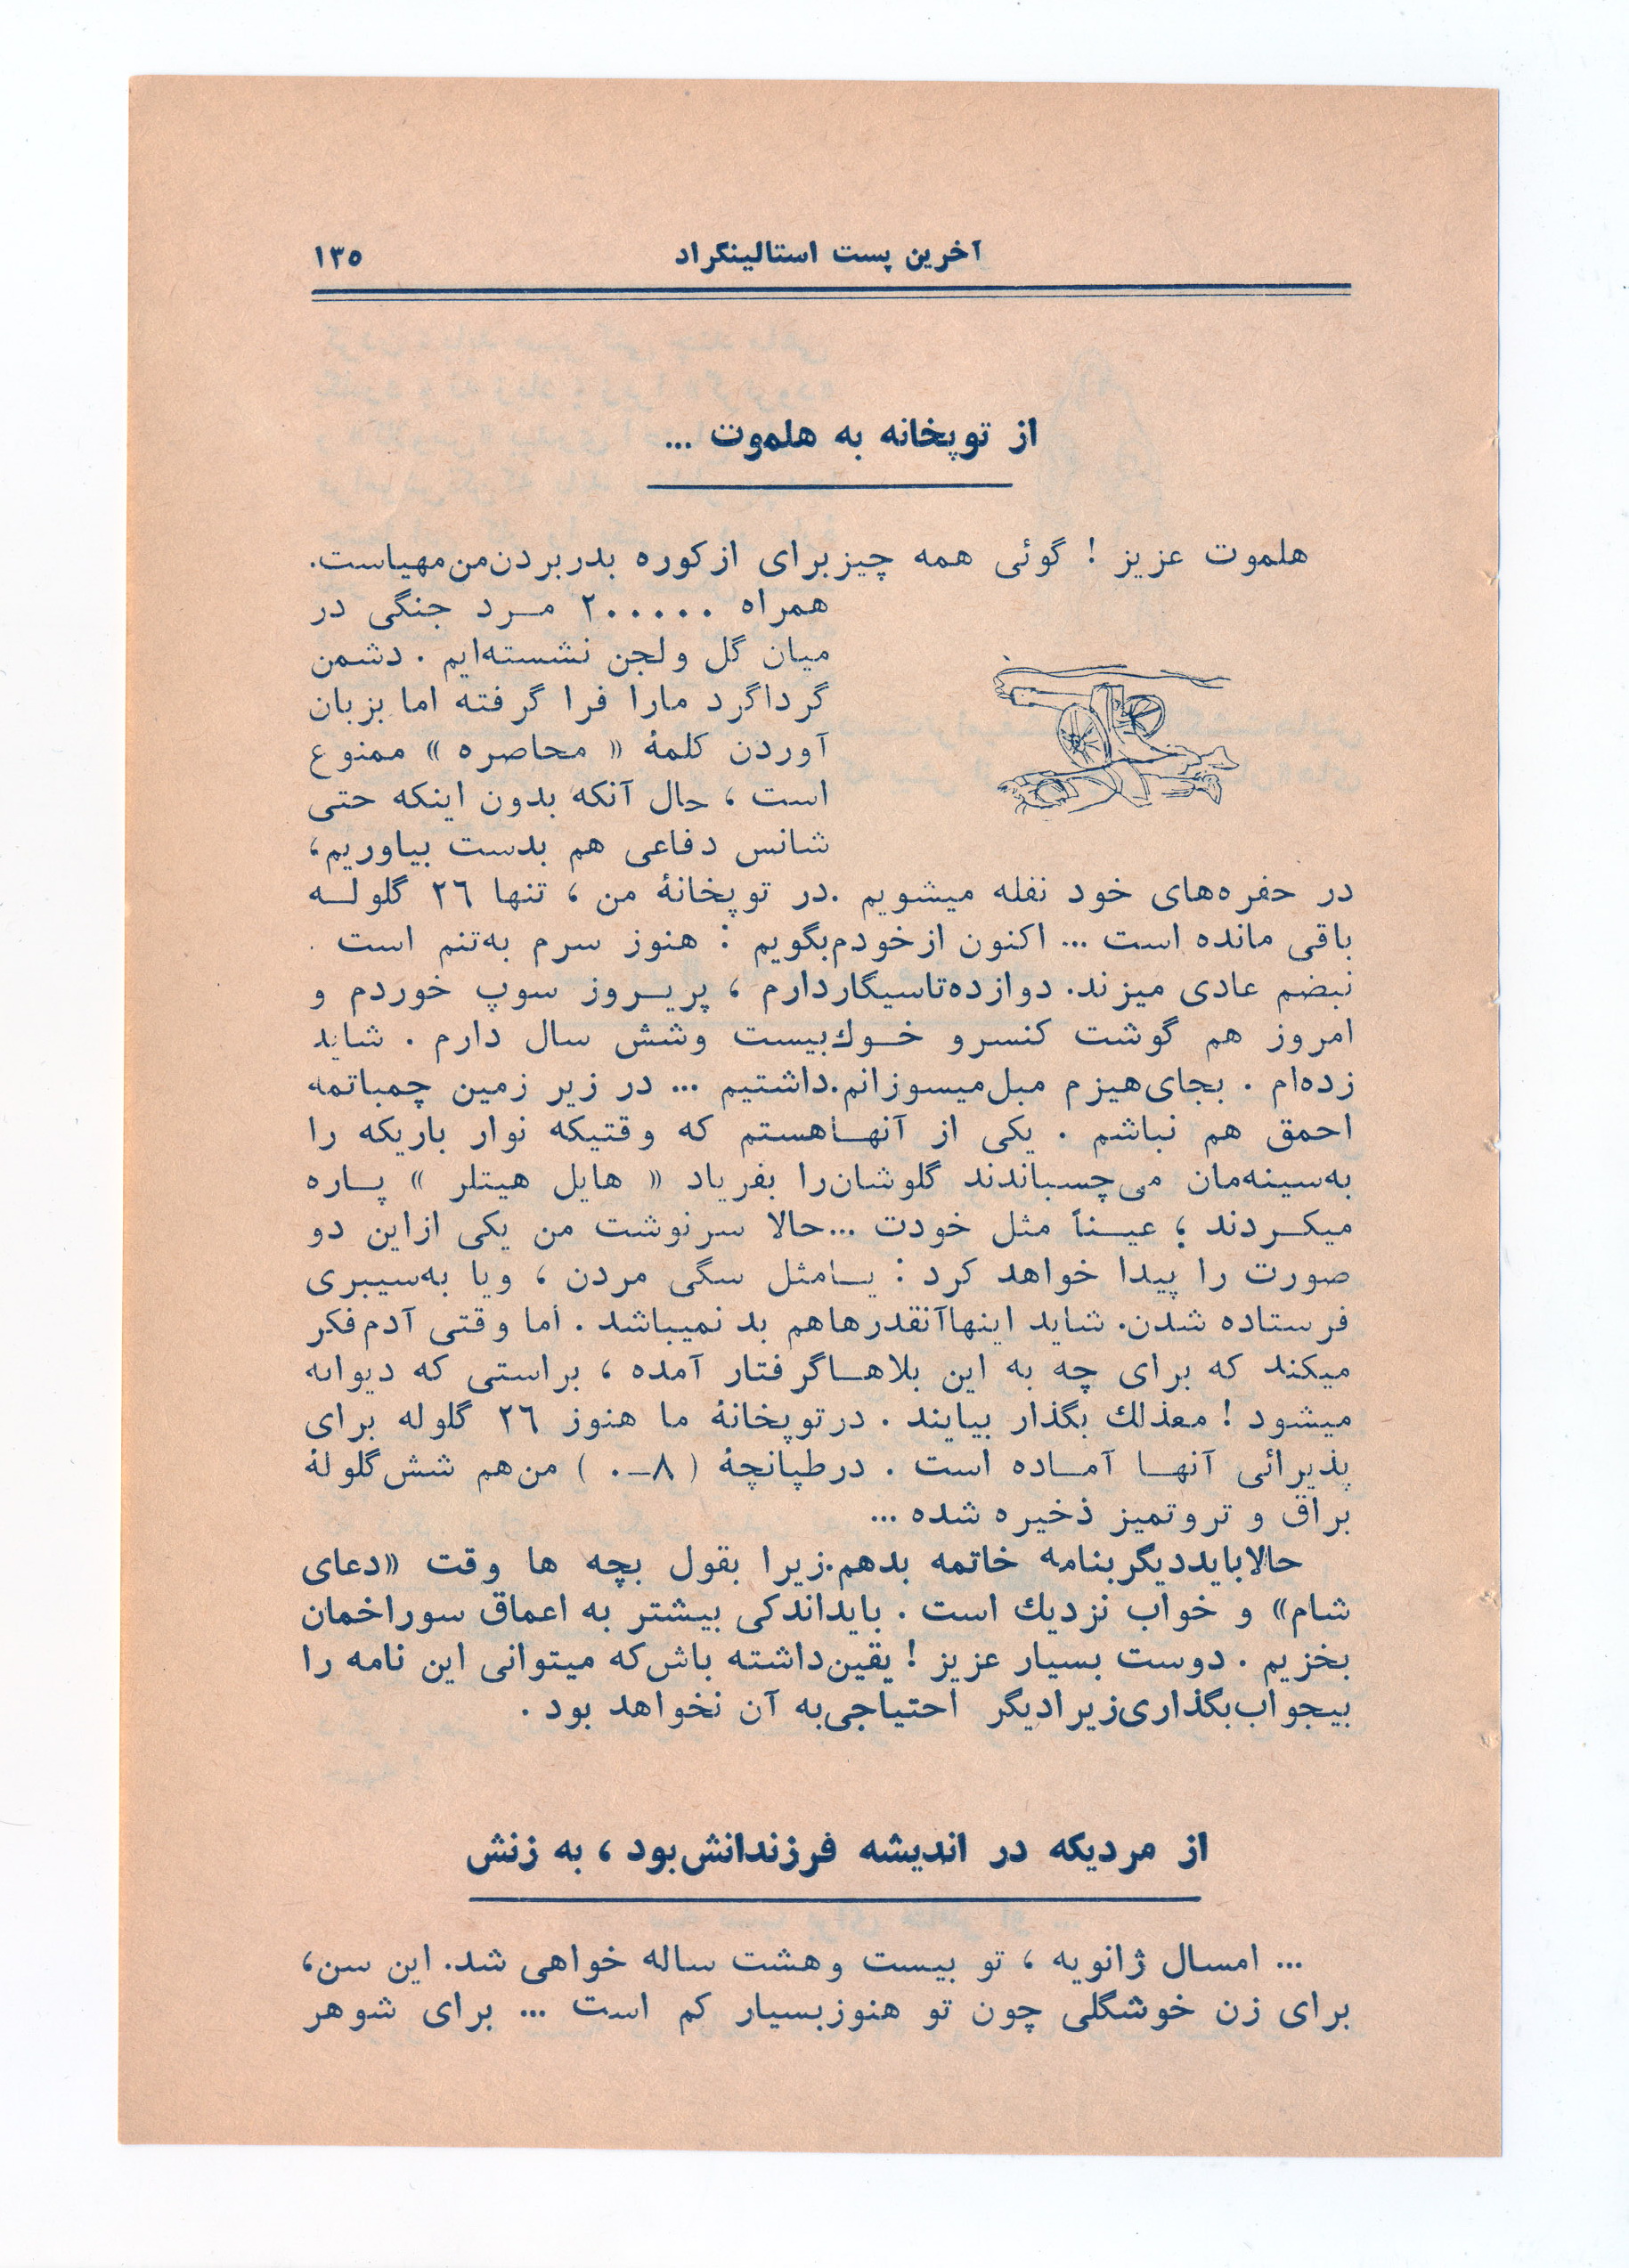 آخرین پست استالینگراد ۱۳۵
از توپخانه به هلموت ...
هلموت عزیز ! گوئی همه چیز برای از کوره بدر بردن من مهیاست.
همراه ۲۰۰۰۰۰ مرد جنگی در
میان گل و لجن نشسته‌ایم . دشمن
گرداگرد مارا فرا گرفته اما بزبان
آوردن کلمهٔ « محاصره » ممنوع
است ، حال آنکه بدون اینکه حتی
شانس دفاعی هم بدست بیاوریم،
در حفره‌های خود نفله میشویم .در توپخانهٔ من ، تنها ۲۶ گلوله
باقی مانده است ... اکنون از خودم بگویم : هنوز سرم به‌تنم است .
نبضم عادی میزند. دوازده‌تا سیگار دارم ، پریروز سوپ خوردم و
امروز هم گوشت کنسرو خوك بیست وشش سال دارم . شاید
زده‌ام . بجای هیزم مبل میسوزانم.داشتیم ... در زیر زمین چمباتمه
احمق هم نباشم . یکی از آنها هستم که وقتیکه نوار باریکه را
به‌سینه‌مان می‌چسباندند گلوشان را بفریاد « هایل هیتلر » پاره
میکردند ؛ عیناً مثل خودت ...حالا سرنوشت من یکی ازاین دو
صورت را پیدا خواهد کرد : یا مثل سگی مردن ، ویا به‌سیبری
فرستاده شدن. شاید اینها آنقدرها هم بد نمیباشد . اما وقتی آدم فکر
میکند که برای چه به این بلاها گرفتار آمده ، براستی که دیوانه
میشود ! معذلك بگذار بیایند . در توپخانهٔ ما هنوز ۲۶ گلوله برای
پذیرائی آنها آماده است . در طپانچهٔ ( ۸-۰ ) من هم شش گلولهٔ
براق و تروتمیز ذخیره شده ...
حالا باید دیگر بنامه خاتمه بدهم.زیرا بقول بچه ها وقت «دعای
شام» و خواب نزدیك است . باید اندکی بیشتر به اعماق سوراخمان
بخزیم . دوست بسیار عزیز ! یقین داشته باش که میتوانی این نامه را
بیجواب بگذاری زیرا دیگر احتیاجی به آن نخواهد بود .
از مردیکه در اندیشه فرزندانش بود ، به زنش
... امسال ژانویه ، تو بیست وهشت ساله خواهی شد. این سن،
برای زن خوشگلی چون تو هنوز بسیار کم است ... برای شوهر